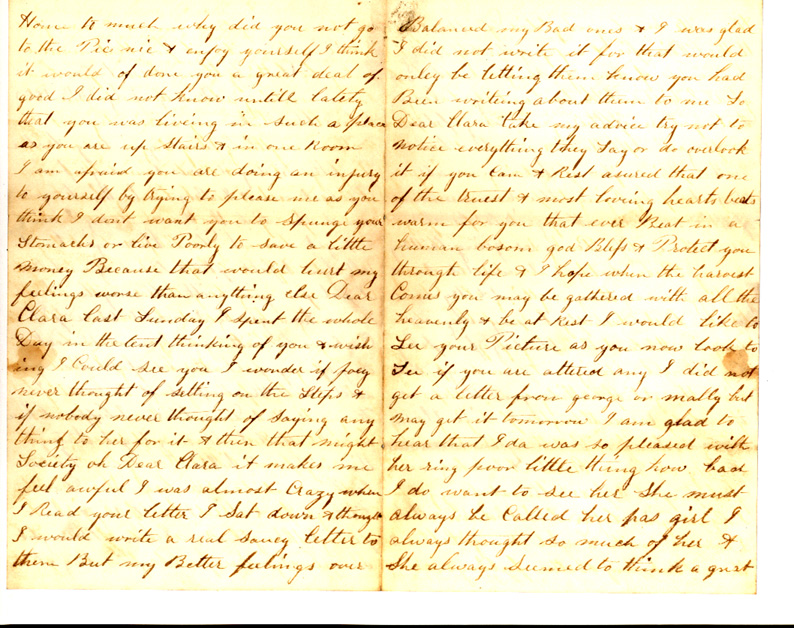 Home to much why did you not go
to the Pic nic & enjoy yourself I think
it would of done you a great deal of
good I did not know untill lately
that you was liveing in such a place
as you are up stairs & in one Room
I am afraid you are doing an injury
to yourself by trying to please me as you
think I dont want you to Spunge your
Stomachs or live Poorly to save a little
money Because that would hurt my
feelings worse than anything else Dear
Clara last Sunday I spent the whole
Day in the tent thinking of you & wish
ing I Could see you I wonder if
never thought of sitting on the Steps &
if nobody never thought of saying any
thing to her for it & then that might
Society oh Dear Clara it makes me
feel awful I was almost Crazy when
I Read your letter I sat down & thought
I would write a real saucy letter to
them But my Better feelings over
Balanced my Bad ones & I was glad
I did not write it for that would
onley be letting them know you had
Been writeing about them to me So
Dear Clara take my advice try not to
notice everything they Say or do overlook
it if you Can & Rest asured that one
of the truest & most loveing hearts beats
warm for you that ever Beat in a
human bosom god Bless & Protect you
through life & I hope when the harvest
Comes you may be gathered with all the
heavenly & be at Rest I would like to
See your Picture as you now look to
See if you are altered any I did not
get a letter from george or mally but
may get it tomorrow I am glad to
hear that Ida was so pleased with
her ring poor little thing how bad
I do want to see her She must
always be Called her pas girl I
always thought so much of her &
She always seemed to think a great